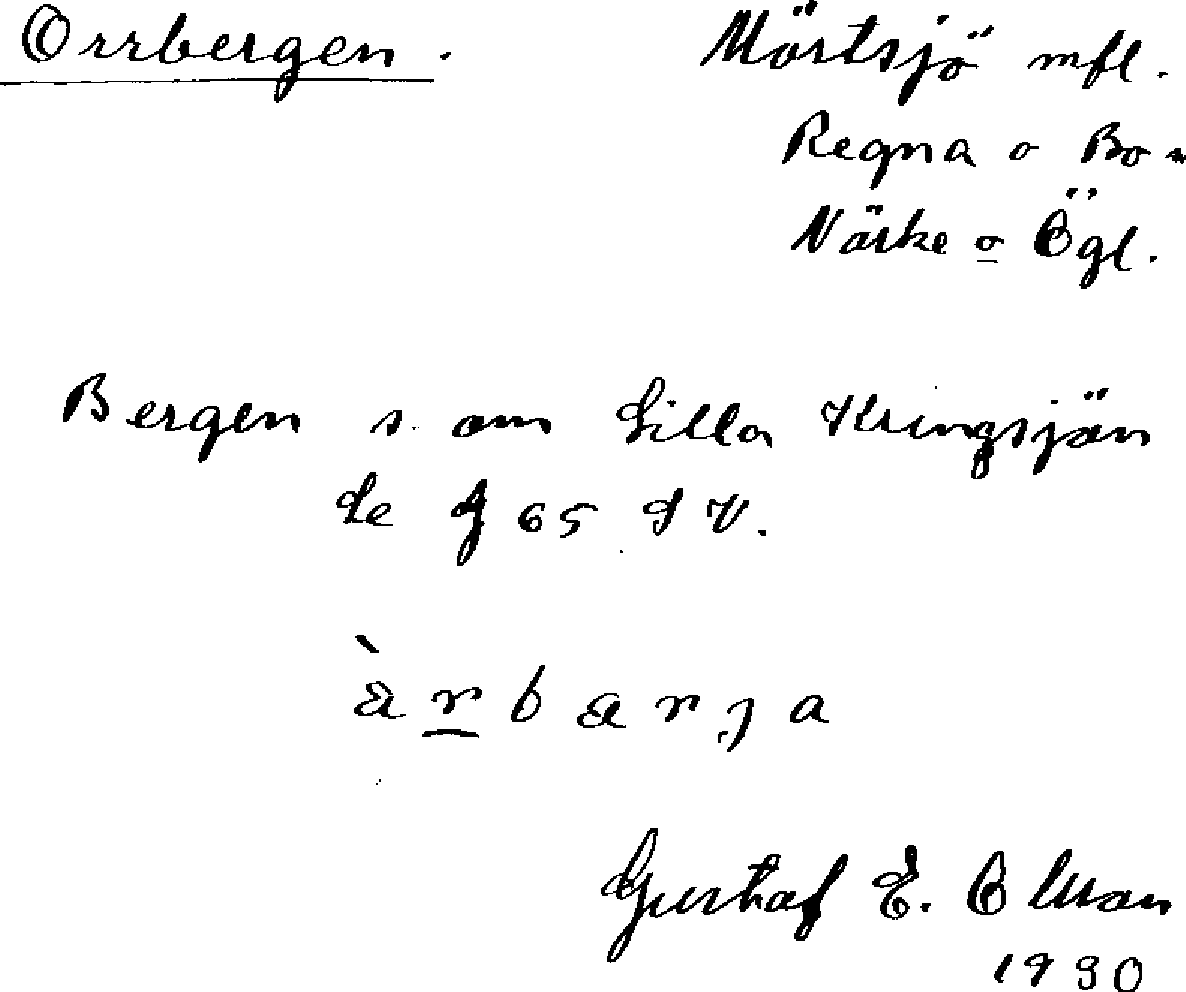 Orrbergen.
Mörtsjö mfl.
Regna o Bo =
Närke o Ögl.
Bergen s. om Lilla Kringsjön
Se J 65 S V.
Gustaf E. Olman
1930